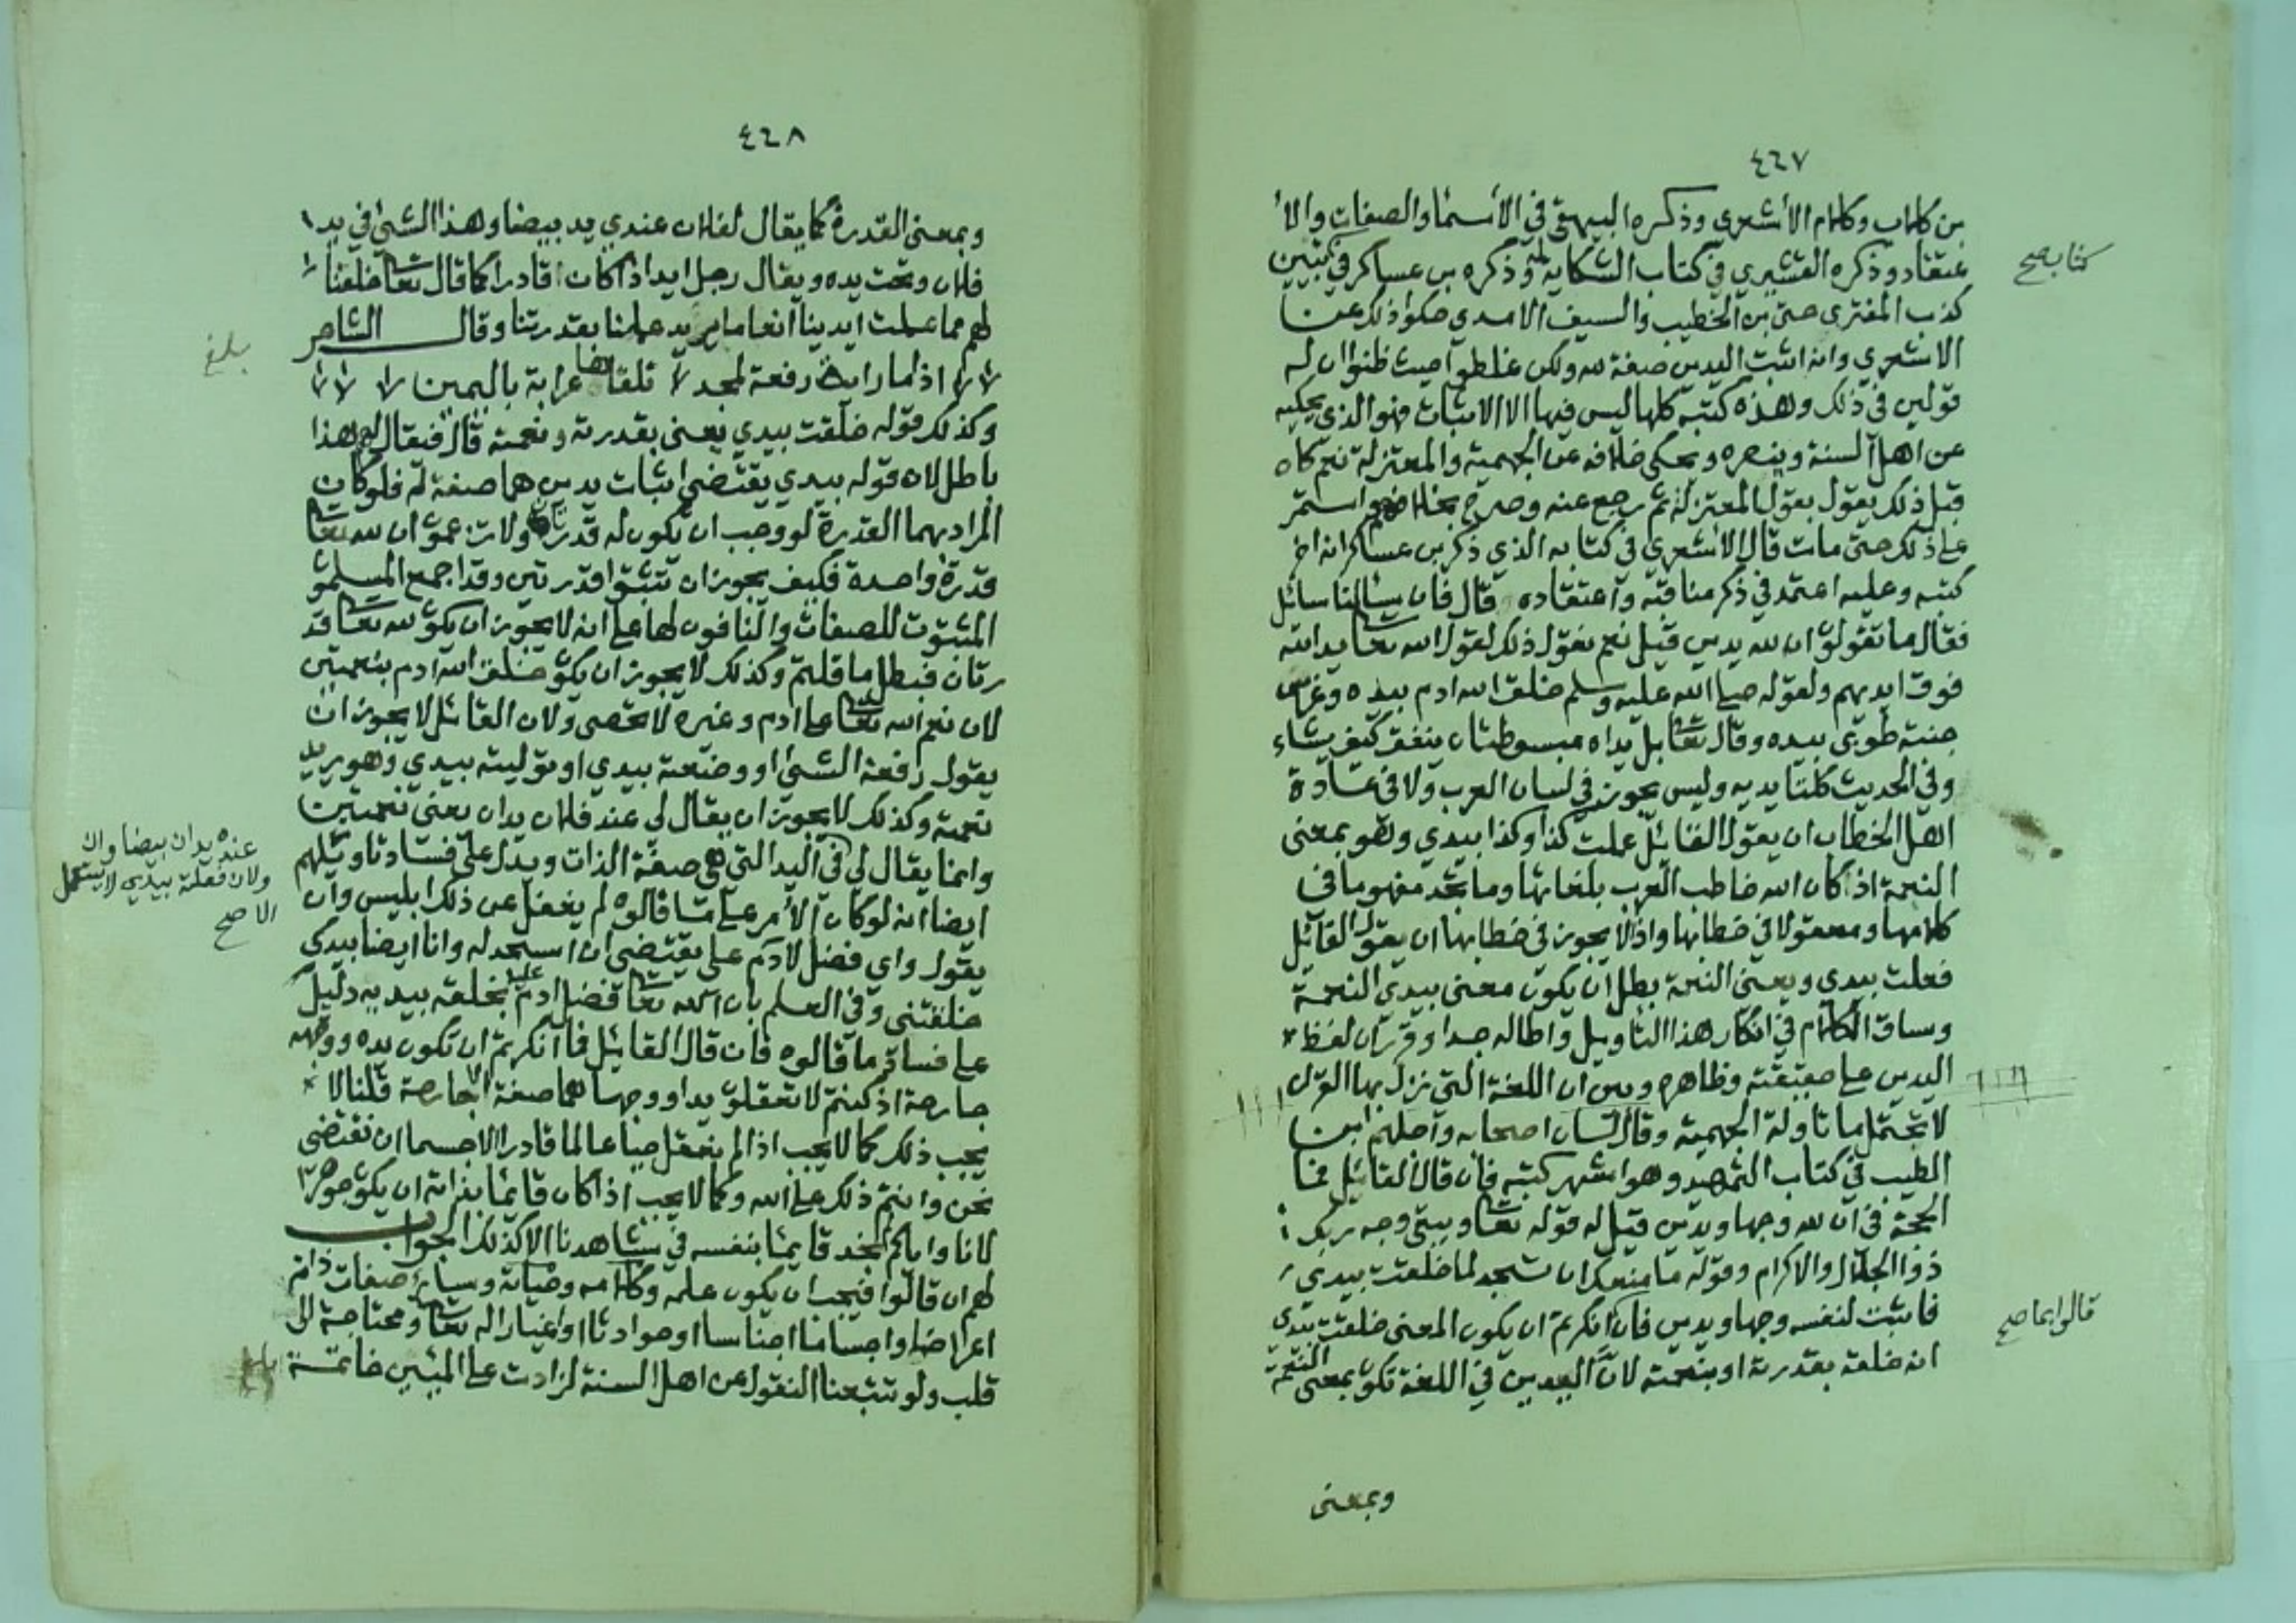 ٤٦٧
بن كلاب وكلام الأشعري وذكره البيهقي في الأسما والصفات والا
عتقاد وذكره القشيري في كتاب الشكايه له وذكره بن عساكر في تبيين
كتابه صح
كذب المفتري حتى بن الخطيب والسيف الامدي حكوا ذلك عن
الاشعري وانه اثبت اليدين صفة لله ولكن غلطوا حيث ظنوا ان له
قولين في ذلك وهذه كتبه كلها ليس فيها الا الاثبات فهو الذي يحكيه
عن اهل السنة وينصره ويحكي خلافه عن الجهمية والمعتزلة نعم كان
قبل ذلك يقول بقول المعتزلة ثم رجع عنه وصرح بخلافهم واستمر
على ذلك حتى مات قال الاشعري في كتابه الذي ذكر بن عساكر انه اخر
كتبه وعليه اعتمد في ذكر مناقبه واعتقاده قال فان سئالنا سائل
فقال ما تقولون ان لله يدين قيل نعم نقول ذلك لقول الله تعا يد الله
فوق ايديهم ولقوله صلى الله عليه وسلم خلق الله ادم بيده وغرس
جنة طوبى بيده وقال تعا بل يداه مبسوطتان ينفق كيف يشاء
وفي الحديث كلتا يديه وليس يجوز في لسان العرب ولا في عادة
اهل الخطاب ان يقول القائل عملت كذا وكذا بيدي وهو بمعنى
النعمة اذا كان الله خاطب العرب بلغاتها وما تجد مفهوما في
كلامها ومعقولا في خطابها واذ لا يجوز في خطابها ان يقول القائل
فعلت بيدي ويعني النعمة بطل ان يكون معنى بيدي النعمة
وساق الكلام في انكار هذا التاويل واطاله جدا وقرر ان لفظ
اليدين على حقيقته وظاهره وبين ان اللغة التي نزل بها القران
لا تحتمل ما تاولته الجهمية وقال لسان اصحابه واجلهم ابن
الطيب في كتاب التمهيد وهو اشهر كتبه فان قال القائل فما
الحجة في ان لله وجها ويدين قيل له قوله تعا ويبقى وجه ربك
ذوا الجلال والاكرام وقوله ما منعك ان تسجد لما خلقت بيدي
فاثبت لنفسه وجها ويدين فان انكرتم ان يكون المعنى خلقت بيدي
قالوا بما صح
انه خلقه بقدرته او بنعمته لان اليدين في اللغة تكون بمعنى النعمة
وبمعنى
٤٦٨
وبمعنى القدرة كما يقال لفلان عندي يد بيضا وهذا الشئ في يد
فلان وتحت يده ويقال رجل ايد اذا كان قادرا كما قال تعا خلقنا
لهم مما عملت ايدينا انعاما يريد عملنا بقدرتنا وقال الشاعر
بلغ
اذا ما راية رفعت لمجد تلقاها عرابة باليمين
وكذلك قوله خلقت بيدي يعني بقدرته ونعمته قال فيقال لهم هذا
باطل لان قوله بيدي يقتضي اثبات يدين هما صفة له فلو كان
المراد بهما القدرة لوجب ان يكون له قدرتان ولا تزعمون ان لله تعا
قدرة واحدة فكيف يجوز ان تثبتوا قدرتين وقد اجمع المسلمون
المثبتون للصفات والنافون لها على انه لا يجوز ان يكون لله تعا قد
رتان فبطل ما قلتم وكذلك لا يجوز ان يكون خلق الله ادم بنعمتين
لان نعم الله تعا على ادم وغيره لا تحصى ولان القائل لا يجوز ان
يقول رفعت الشئ او وضعته بيدي او توليته بيدي وهو يريد
نعمته وكذلك لا يجوز ان يقال لي عند فلان يدان يعني نعمتين
وانما يقال لي في اليد التي هي صفة الذات ويدل على فساد تاويلهم
عنده يدان بيضاوان
ولان فعلته بيدي لا يستعمل
الا صح
ايضا انه لو كان الأمر على ما قالوه لم يغفل عن ذلك ابليس وان
يقول واي فضل لادم علي يقتضي ان اسجد له وانا ايضا بيدك
خلقتني وفي العلم بان الله تعا فضل ادم عليه بخلقه بيديه دليل
على فساد ما قالوه فان قال القائل فما انكرتم ان تكون يده ووجهه
جارحة اذ كنتم لا تعقلون يدا ووجها هما صفة الا جارحة قلنا لا
يجب ذلك كما لا يجب اذا لم نعقل حيا عالما قادرا الا جسما ان نقتضي
نحن وانتم ذلك على الله وكما لا يجب اذا كان قايما بذاته ان يكون جوهرا
لانا واياكم لم نجد قايما بنفسه في شاهدنا الا كذلك الجواب
لهم ان قالوا فيجب ان يكون علمه وكلامه وحياته وسائر صفات ذاته
اعراضا واجساما اجناسا او حوادثا او اغيارا له تعا ومحتاجة الى
قلب ولو تتبعنا النقول عن اهل السنة لزادت على المئين خاتمة